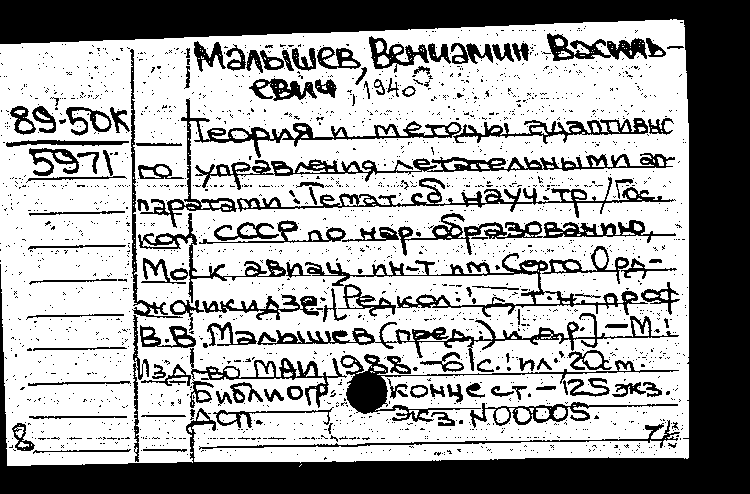 Малышев, Вениамин Василь-
евич, 1940
89-50К
5971
Теория и методы адаптивно
го управления летательными ап-
паратами: Темат. сб. науч. тр. / Гос.
ком. СССР по нар. образованию,
Моск. авиац. ин-т им. Серго Орд-
жоникидзе; [Редкол.: д. т. н., проф
В. В. Малышев (пред.) и др.]. – М.:
Изд-во МАИ, 1988. – 61 с.: ил.; 20 см.
Библиогр. конце ст. – 125 экз.
ДСП. Экз. N 00005.
8